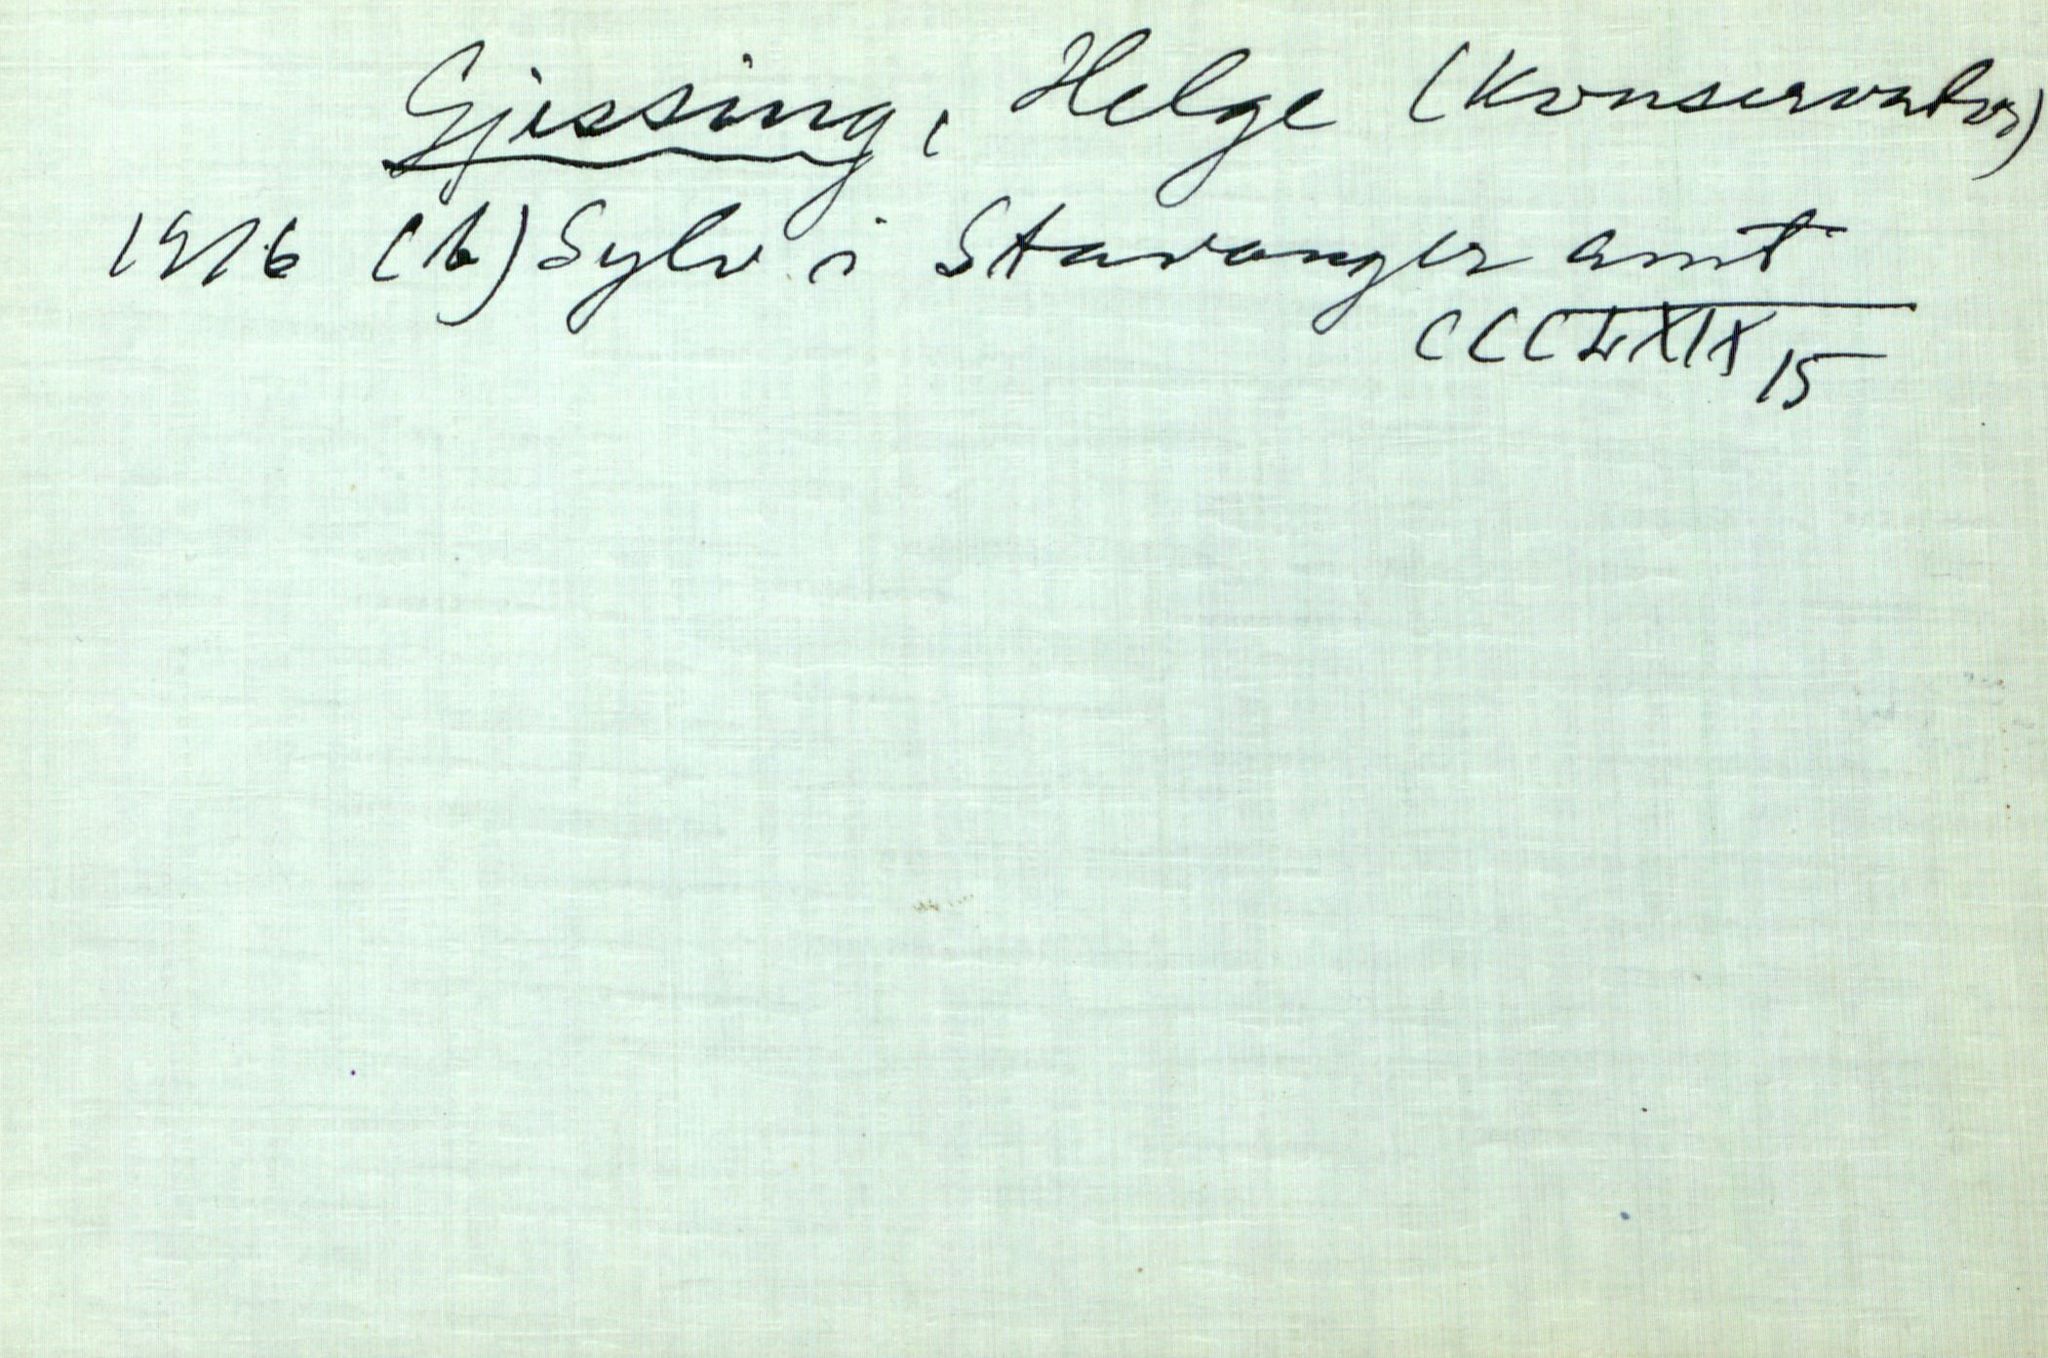 Gjessing, Helge (Konservator)
1916 (b) Sylv i Stavanger amt
CCCLXIX 15